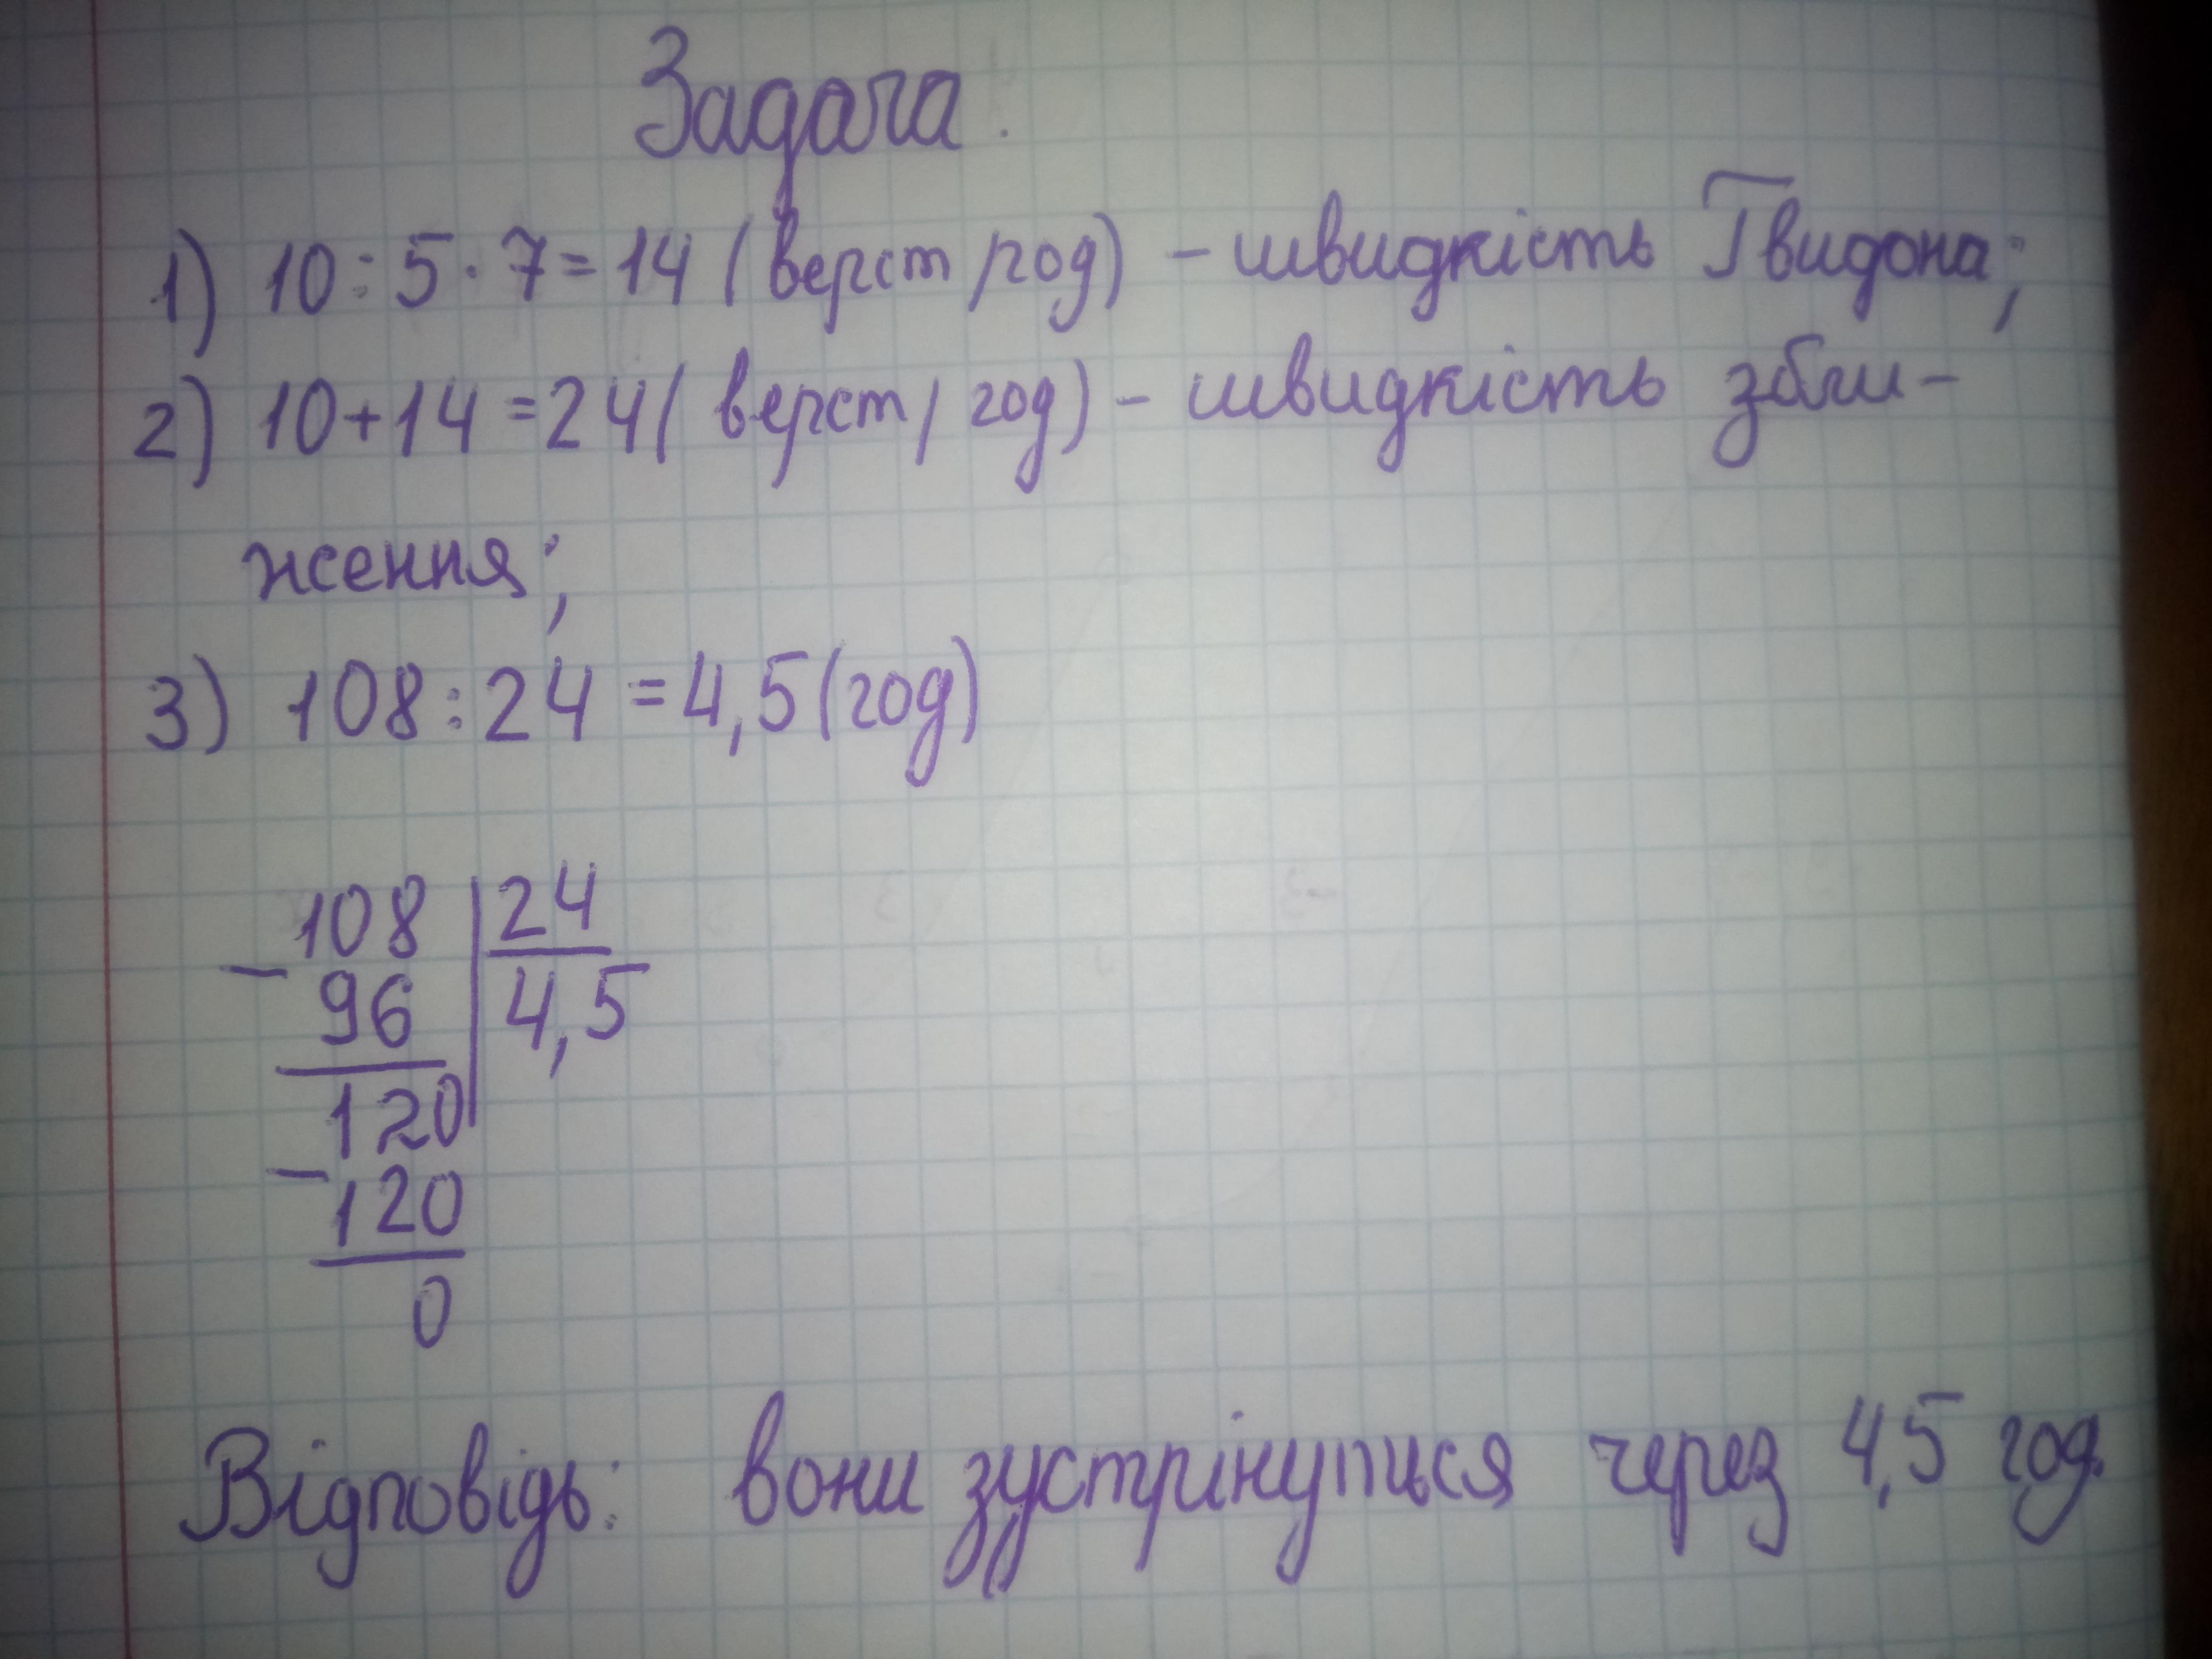 Задача.
1) 10:5·7=14 (верст/год) - швидкість Гвидона;
2) 10+14=24 (верст/год) - швидкість збли-
ження;
3) 108:24=4,5(год)
108 24
- 96 4,5
120
- 120
0
Відповідь: вони зустрінуться через 4,5 год.